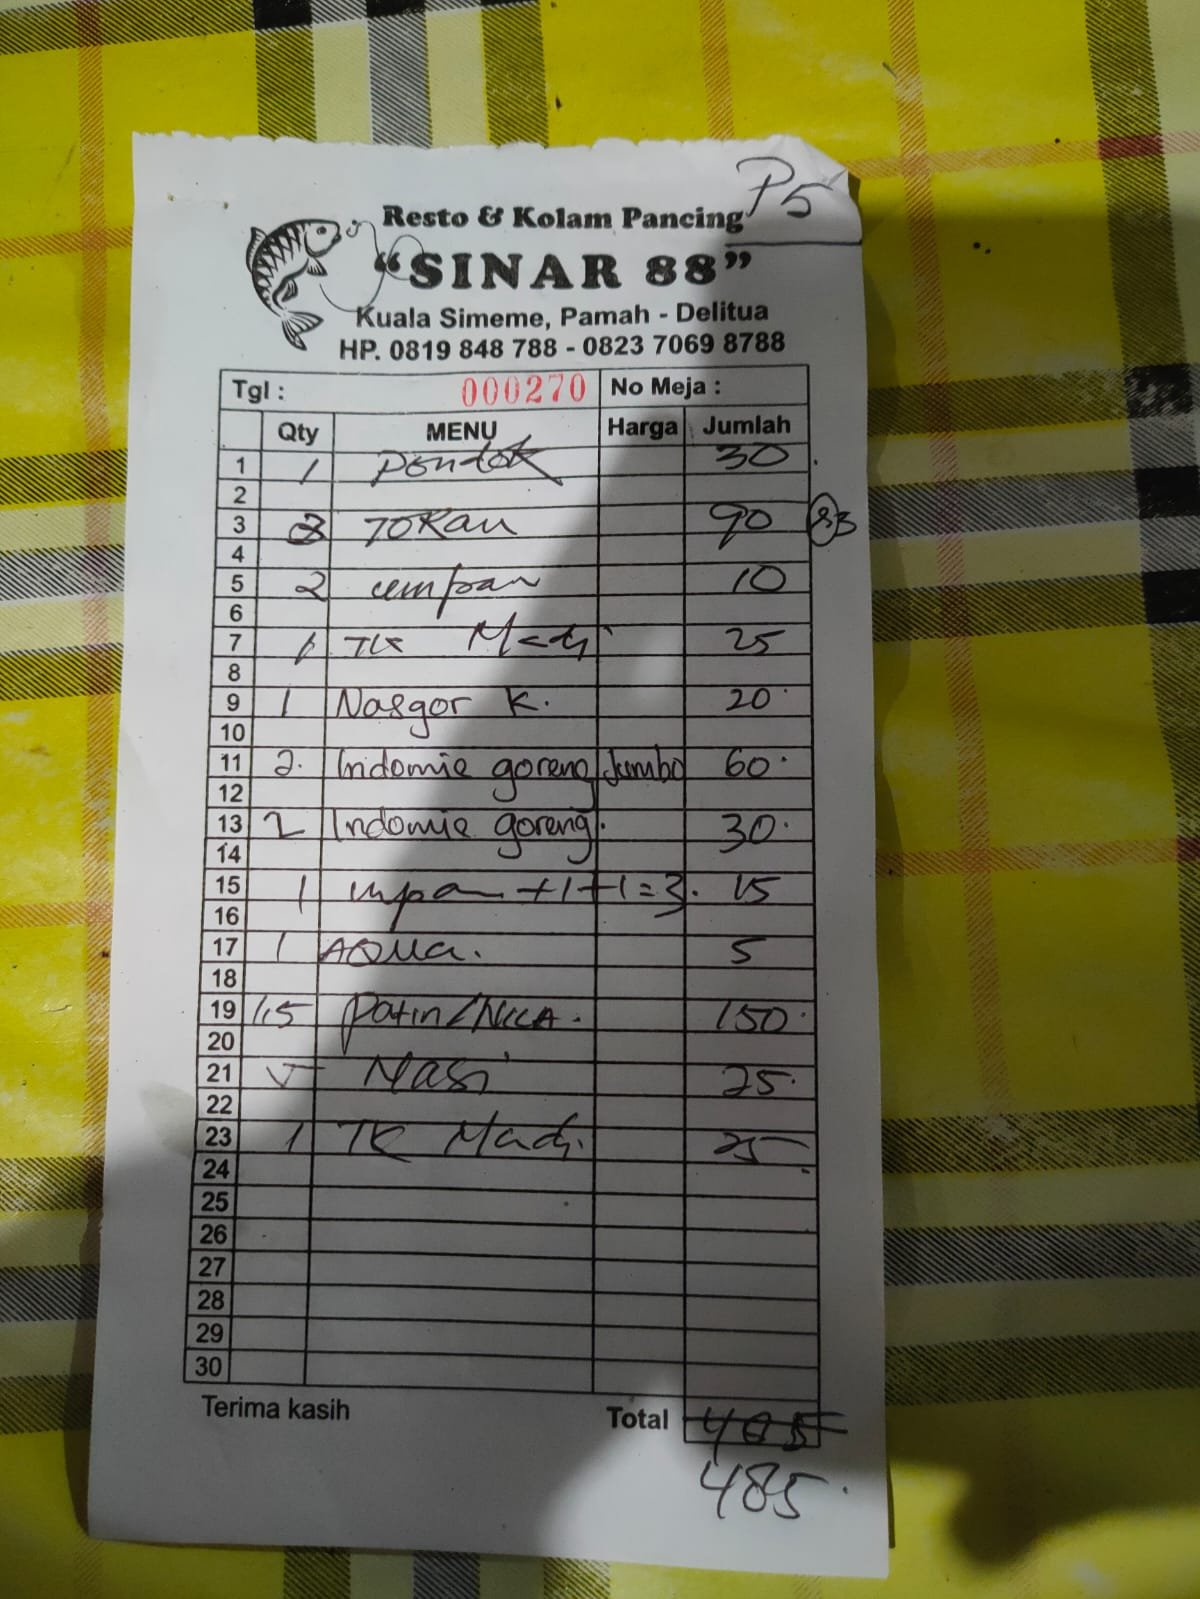 P5
Resto & Kolam Pancing
"SINAR 88"
Kuala Simeme, Pamah - Delitua
HP. 0819 848 788 - 0823 7069 8788
Tgl : 000270 No Meja :
Qty MENU Harga Jumlah
1 1 Pondok 30
2
3 3 TOKan 90 83
4
5 2 umpan 10
6
7 1 TK Madi 25
8
9 1 Nasgor K. 20
10
11 2. Indomie goreng Jumbo 60
12
13 2 Indomie goreng. 30
14
15 1 umpan +1+1=3. 15
16
17 1 AQUa. 5
18
19 1,5 Patin/NILA. 150
20
21 5 Nasi 25
22
23 1 TK Madi. 25
24
25
26
27
28
29
30
Terima kasih Total
485